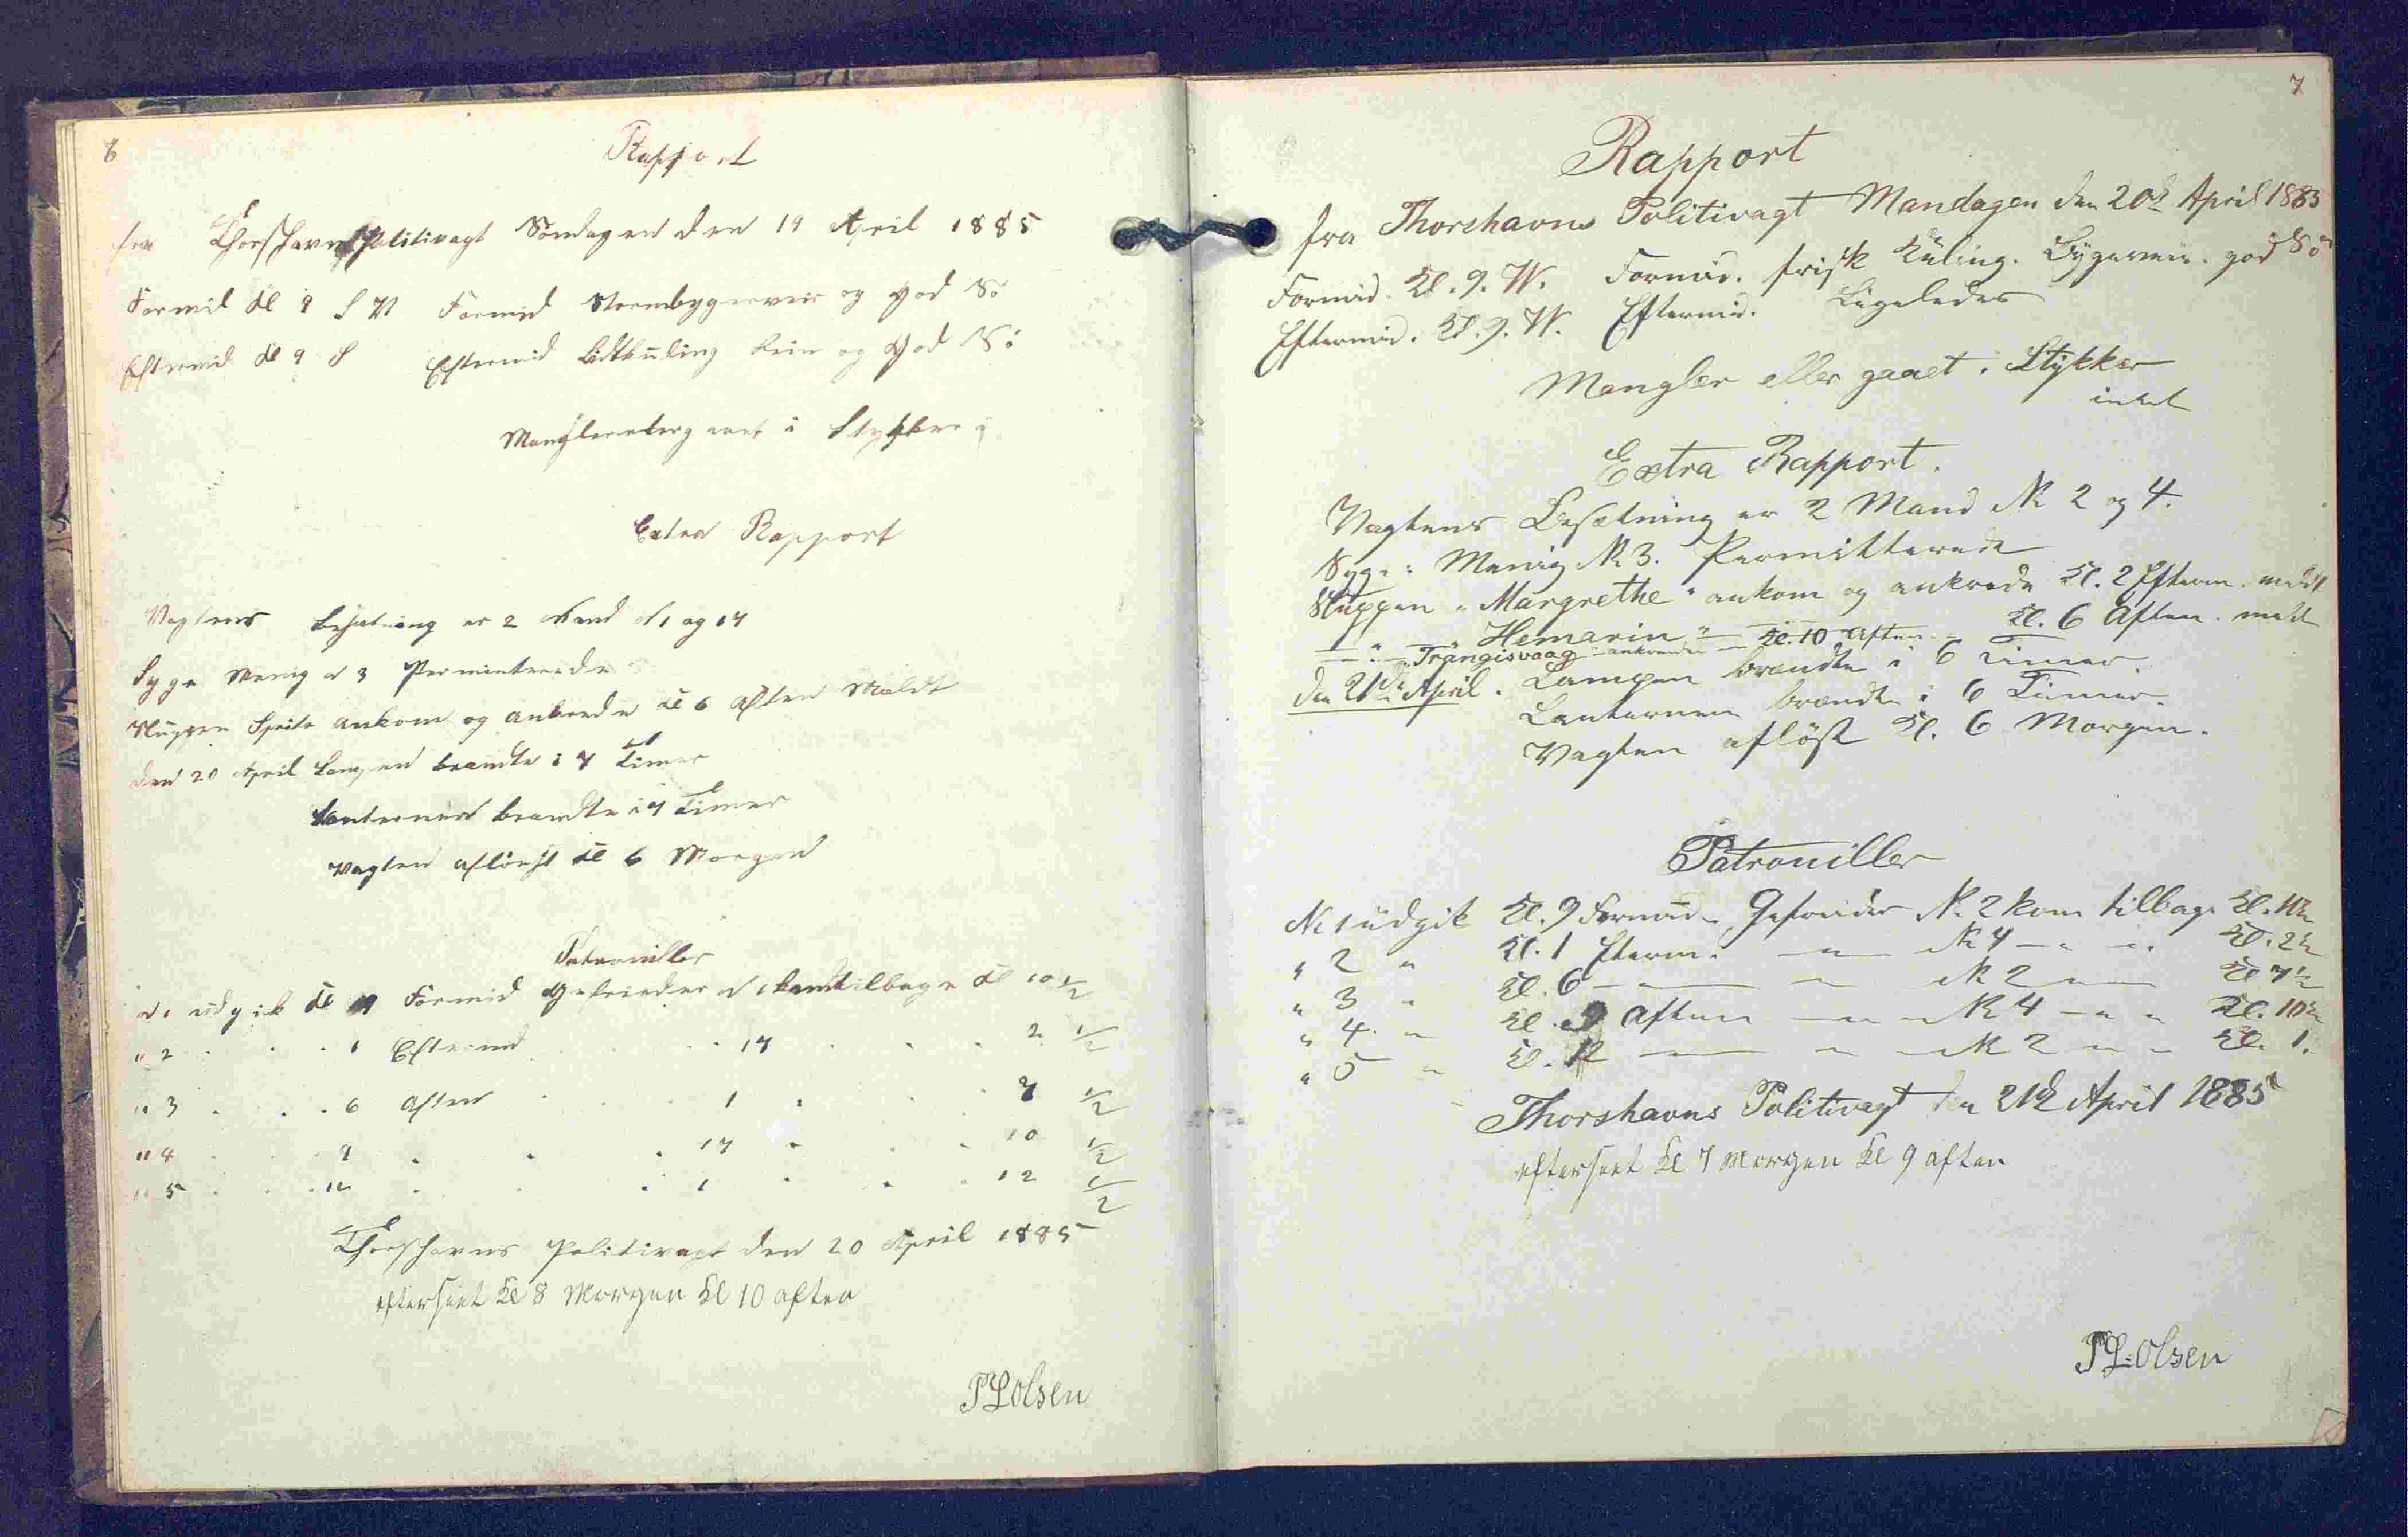 6
Rapport
fra Thorshavns Politivagt Søndagen den 19 April 1885
Formid Kl 9 S W Formid Stormbygerveir og god Sö
Eftermid Kl 9 S Eftermid Lidtkuling Rein og god Sö
Mangler eler gaaet i Stykker
Extra Rapport
Vagtens Besætning er 2 Mand N 1 og 17
Syge Menig N 3 Permiterede
Sluppen Speite ankom og ankrede Kl 6 Aften Meldt
den 20 April Lampen brændte i 7 Timer
Lanternen brændte i 7 Timer
Vagten aflöst Kl 6 Morgen
Patrouiller
N 1 udgik Kl 9 Formid Gefreider N 1 kom tilbage Kl 10 1/2
" 2 . . . 1 Eftermd . . . 17 . . . 2 1/2
" 3 . . . 6 Aften . . . 1 . . . 7 1/2
" 4 . . 9 . . . 17 . . 10 1/2
" 5 . . . 12 . . . 1 . . . 12 1/2
Thorshavns Politivagt den 20 April 1885
efterseet Kl 8 Morgen Kl 10 aften
P L Olsen
7
Rapport
fra Thorshavns Politivagt Mandagen den 20de April 1885
Formid. Kl. 9. W. Formid. frisk Kuling. Bygeveir. god Sö
Eftermid. Kl. 9. W. Eftermid. Ligeledes
Mangler eller gaaet i Stykker
intet
Extra Rapport.
Vagtens Besætning er 2 Mand No 2 og 4.
Syge: Menig No 3. Permitterede
Sluppen "Margrethe" ankom og ankrede Kl. 2 Efterm. meldt
— " — "Hemarin" — " — Kl. 6 Aften. meldt
— " — "Trangisvaag" — ankrede — Kl. 10 Aften
den 21de April. Lampen brændte i 6 Timer.
Lanternen brændte i 6 Timer.
Vagten aflöst Kl. 6 Morgen.
Patrouiller
No 1 udgik Kl. 9 Formid. Gefreider No 2 kom tilbage Kl. 10½
" 2 " Kl. 1 Efterm. — " — No 4 — " — " Kl. 2½
" 3 " Kl. 6 — " — " — No 2 — " — Kl 7½
" 4 " Kl. 9 Aften — " — No 4 — " — " Kl. 10½
" 5 " Kl. 12 — " — " — No 2 — " — " Kl. 1.
Thorshavns Politivagt den 21de April 1885
efterseet Kl 7 Morgen Kl 9 aften
P L: Olsen